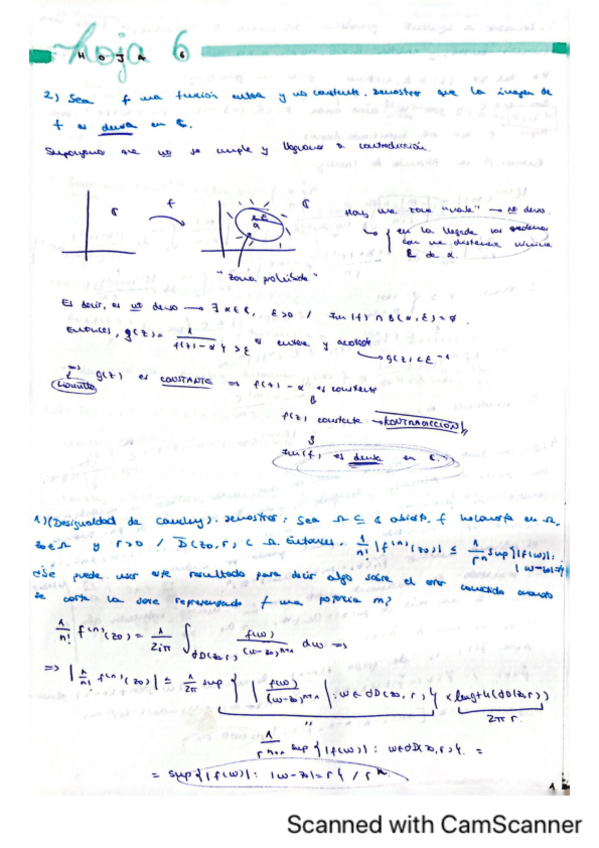 Hoja 6
HOJA 6
2) Sea f una función entera y no constante. Demostrar que la imagen de
f es densa en ℂ.
Supongamos que no se cumple y llegamos a contradicción.
ℂ f ℂ
α
"zona prohibida"
Hay una zona "vacía" → no denso.
en la llegada
con una distancia mínima
ε de α.
Es decir, es no denso → ∃ α∈ℂ, ε>0 / Im(f) ∩ B(α,ε)=∅.
Entonces, g(z)= 1/(f(z)-α) es entera y acotada
>ε
→ g(z)<ε⁻¹
⇒ g(z) es CONSTANTE ⇒ f(z)-α es constante
Liouville
f(z) constante → CONTRADICCIÓN
Im(f) es densa en ℂ.
1) (Desigualdad de Cauchy). Demostrar: Sea Ω ⊆ ℂ abierto, f holomorfa en Ω,
z₀∈Ω y r>0 / D̄(z₀,r) ⊂ Ω. Entonces, 1/n! |f⁽ⁿ⁾(z₀)| ≤ 1/rⁿ sup{|f(w)|:
|w-z₀|=r}
¿Se puede usar este resultado para decir algo sobre el error cometido cuando
se corta la serie representando f una potencia m?
1/n! f⁽ⁿ⁾(z₀) = 1/2iπ ∫_∂D(z₀,r) f(w)/(w-z₀)ⁿ⁺¹ dw ⇒
⇒ |1/n! f⁽ⁿ⁾(z₀)| ≤ 1/2π sup{|f(w)/(w-z₀)ⁿ⁺¹| : w∈∂D(z₀,r)} × length(∂D(z₀,r))
" 2πr
1/rⁿ⁺¹ sup{|f(w)| : w∈∂D(z₀,r)}. =
= sup{|f(w)| : |w-z₀|=r} / rⁿ
Scanned with CamScanner